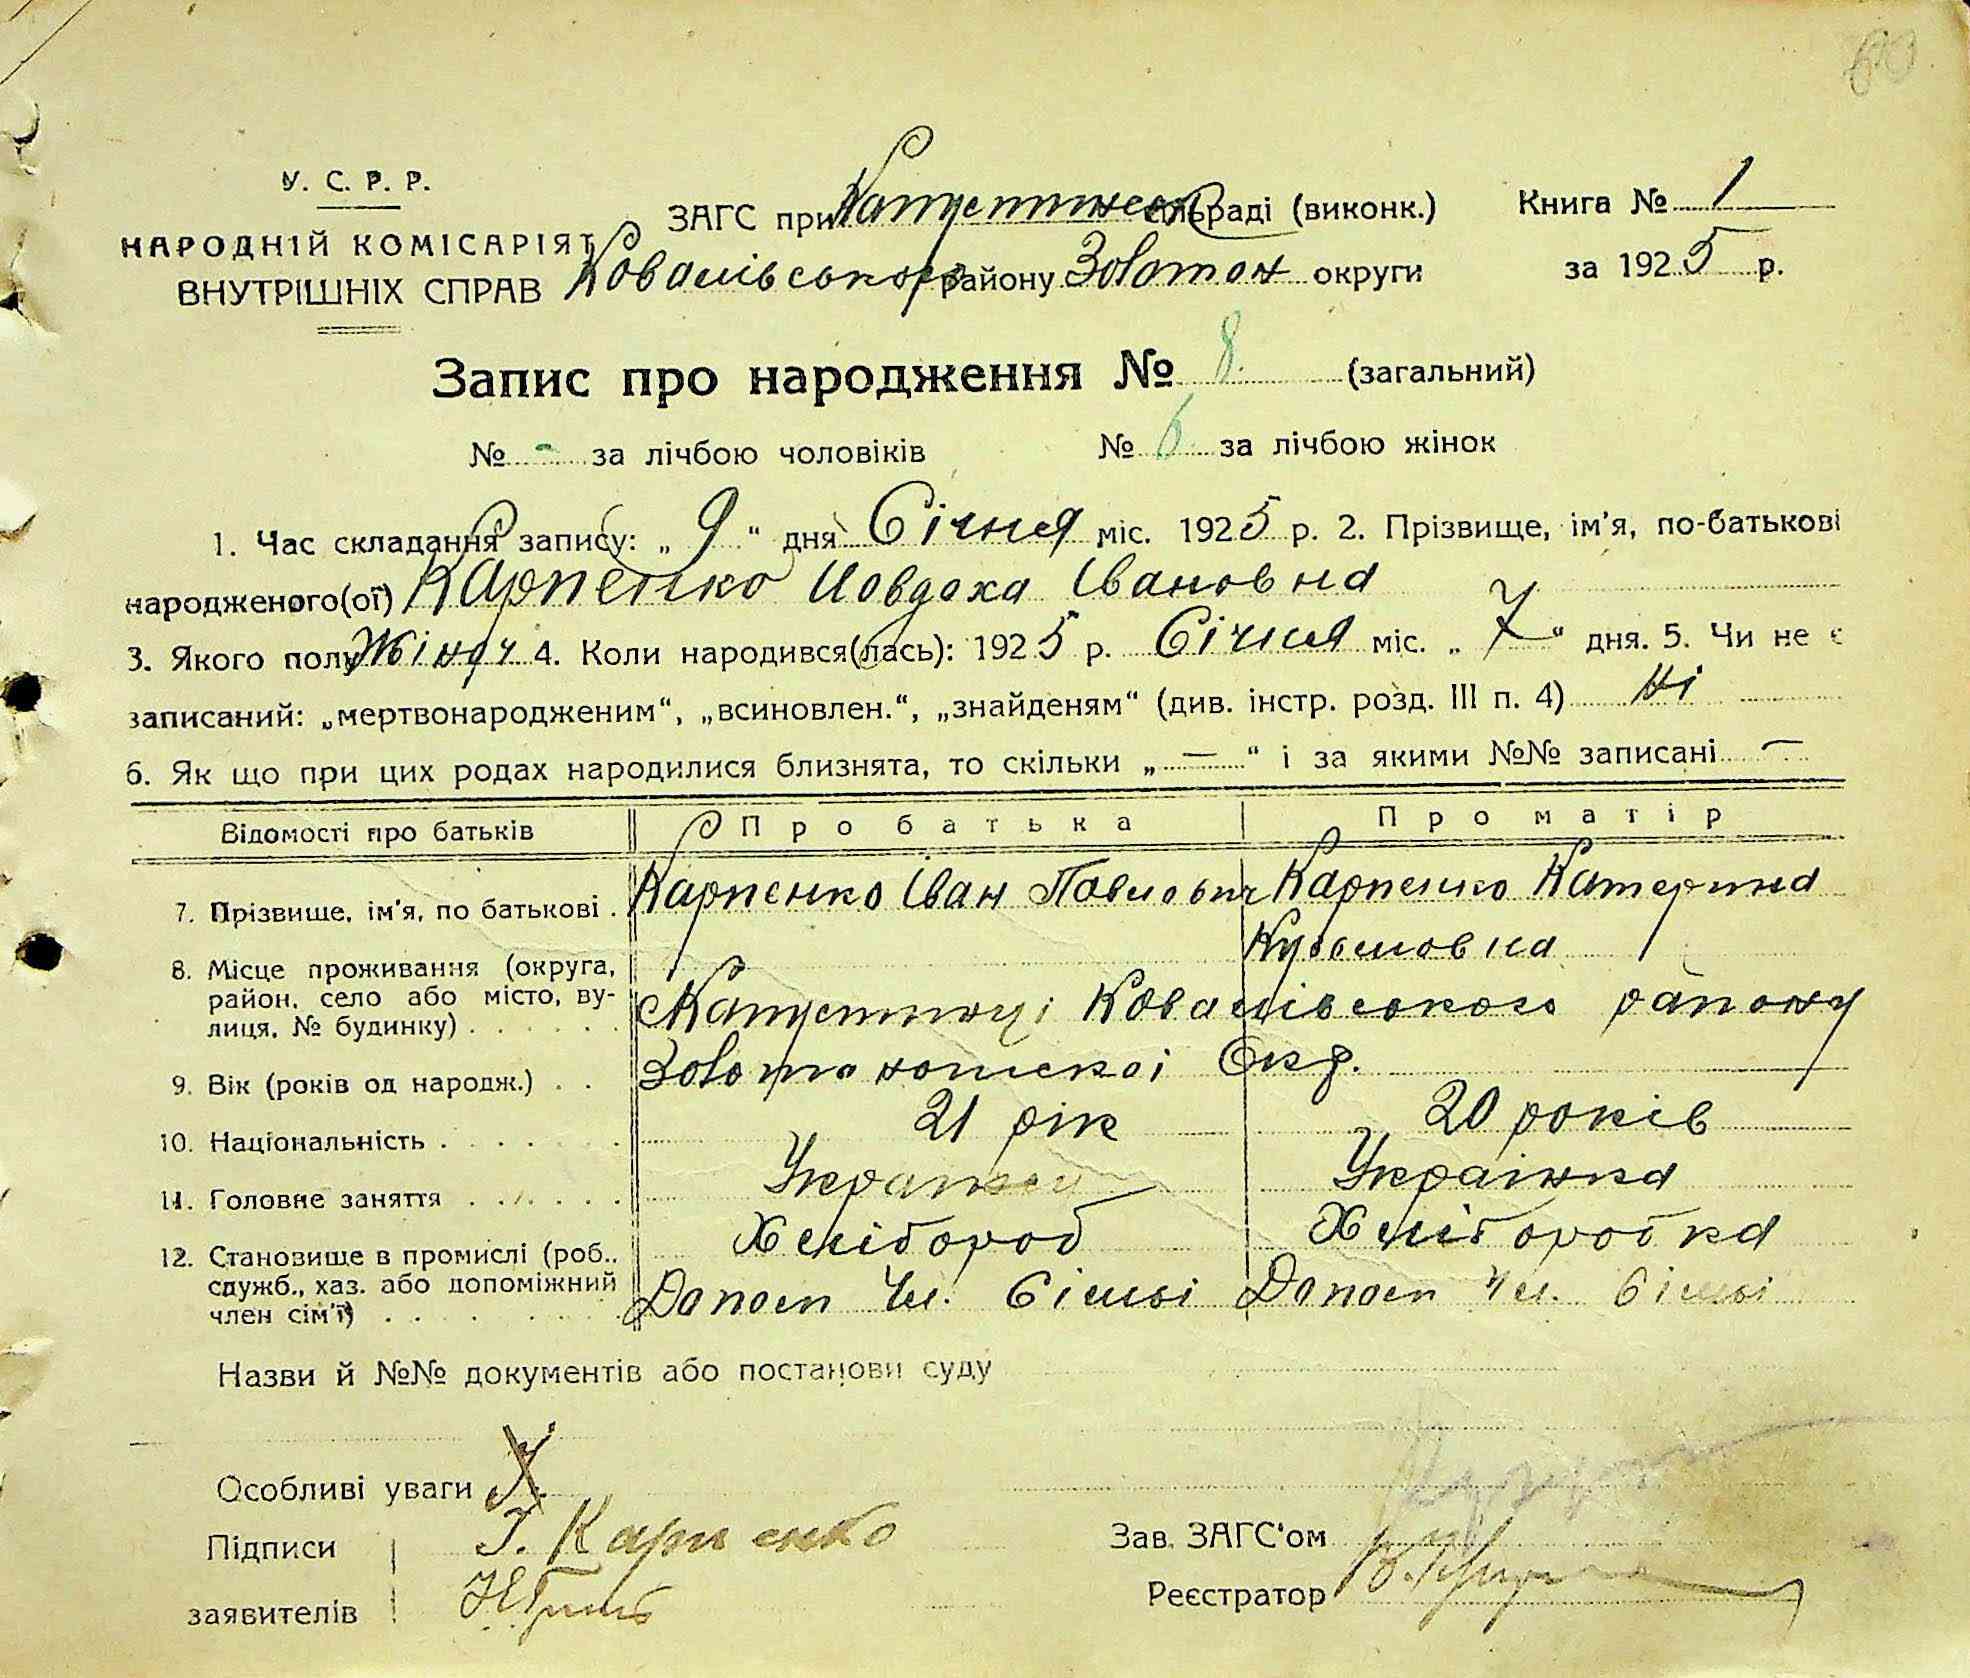 60
У. С. Р. Р.
НАРОДНІЙ КОМІСАРІЯТ
ВНУТРІШНІХ СПРАВ
ЗАГС при Капустинск сільраді (виконк.)
Ковалівського району Золотон округи
Книга № 1
за 1925 р.
Запис про народження № 8. (загальний)
№ - за лічбою чоловіків № 6 за лічбою жінок
1. Час складання запису: „ 9 “ дня Січня міс. 1925 р. 2. Прізвище, ім'я, по-батькові
народженого(ої) Карпенко Иовдоха Івановна
3. Якого полу Жіноч 4. Коли народився(лась): 1925 р. Січня міс. „ 7 “ дня. 5. Чи не є
записаний: „мертвонародженим“, „всиновлен.“, „знайденям“ (див. інстр. розд. III п. 4) Ні
6. Як що при цих родах народилися близнята, то скільки „ — “ і за якими №№ записані —
Відомості про батьків Про батька Про матір
7. Прізвище, ім'я, по батькові . Карпенко Іван Павлович Карпенко Катерина
Кузьмовна
8. Місце проживання (округа,
район, село або місто, ву-
лиця, № будинку) . . . . . .
Капустинці Ковалівського району
Золотоношскоі Окр.
9. Вік (років од народж.) . . 21 рік 20 років
10. Національність . . . . . . . Украінец Украінка
11. Головне заняття . . . . . . Хлібороб Хліборобка
12. Становище в промислі (роб.,
служб., хаз. або допоміжний
член сім'ї) . . . . . . . . .
Допом Чл. Сімьі Допом Чл. Сімьі
Назви й №№ документів або постанови суду
Особливі уваги
Підписи І. Карпенко
заявителів
Зав. ЗАГС'ом
Реєстратор